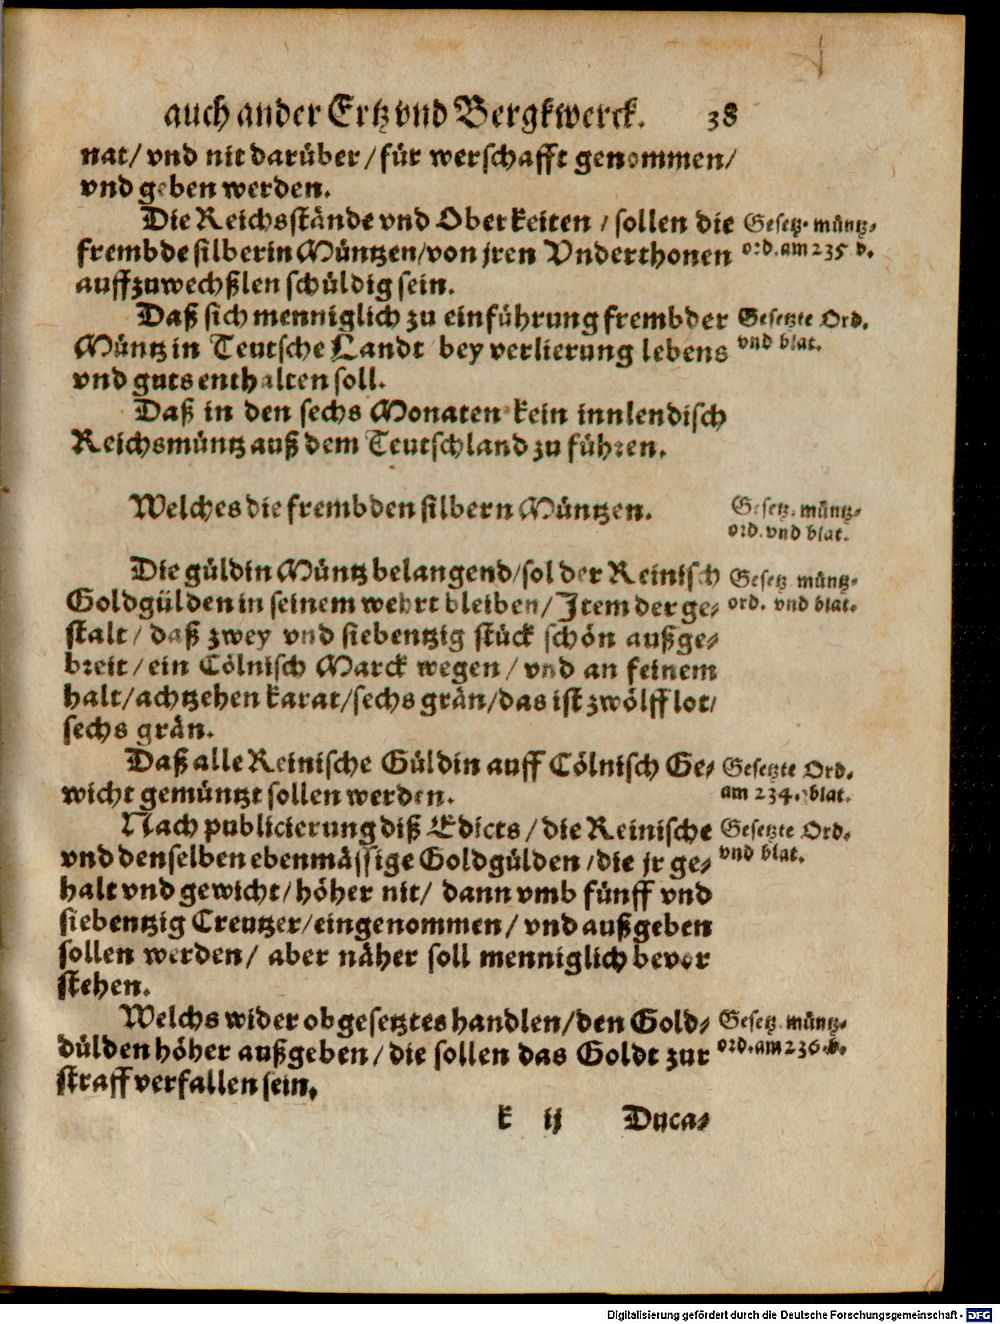 auch ander Ertz vnd Bergkwerck. 38
nat/ vnd nit darüber/ für werschafft genommen/
vnd geben werden.
Die Reichsstände vnd Oberkeiten / sollen die
frembde silberin Müntzen/ von jren Vnderthonen
auffzuwechßlen schüldig sein.
Gesetz. müntz-
ord. am 235 b.
Daß sich menniglich zu einführung frembder
Müntz in Teutsche Landt bey verlierung lebens
vnd guts enthalten soll.
Gesetzte Ord.
vnd blat.
Daß in den sechs Monaten kein innlendisch
Reichsmüntz auß dem Teutschland zu führen.
Welches die frembden silbern Müntzen.
Gesetz. müntz-
ord. vnd blat.
Die güldin Müntz belangend/ sol der Reinisch
Goldgülden in seinem wehrt bleiben/ Item der ge-
stalt/ daß zwey vnd siebentzig stück schön außge-
breit/ ein Cölnisch Marck wegen/ vnd an feinem
halt/ achtzehen karat/ sechs grän/ das ist zwölff lot/
sechs grän.
Gesetz müntz-
ord. vnd blat.
Daß alle Reinische Güldin auff Cölnisch Ge-
wicht gemüntzt sollen werden.
Gesetzte Ord.
am 234. blat.
Nach publicierung diß Edicts/ die Reinische
vnd denselben ebenmässige Goldgülden/ die jr ge-
halt vnd gewicht/ höher nit/ dann vmb fünff vnd
siebentzig Creutzer/ eingenommen/ vnd außgeben
sollen werden/ aber näher soll menniglich bevor
stehen.
Gesetzte Ord.
vnd blat.
Welchs wider obgesetztes handlen/ den Gold-
dülden höher außgeben/ die sollen das Goldt zur
straff verfallen sein.
Gesetz müntz-
ord. am 236. b.
k ij Duca-
Digitalisierung gefördert durch die Deutsche Forschungsgemeinschaft - DFG